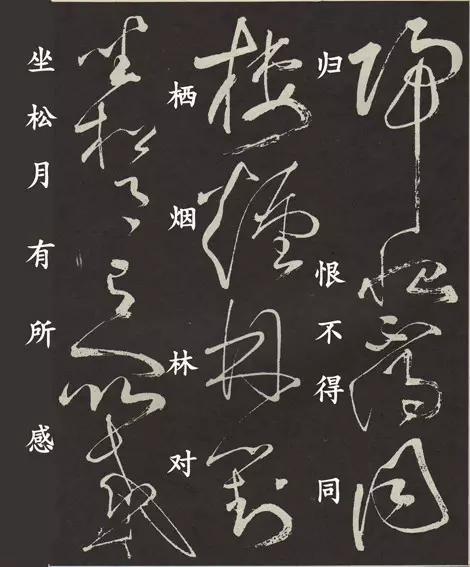 归恨不得同
栖烟林对
坐松月有所感